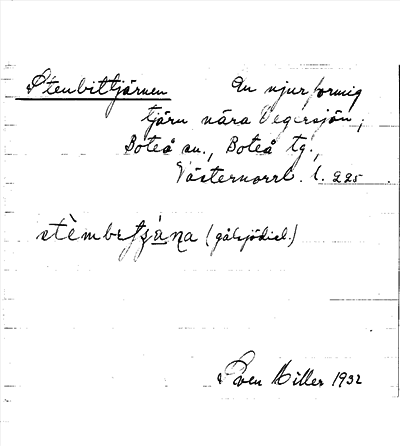 Stenbittjärnen En njurformig
tjärn nära Vegersjön;
Boteå sn., Boteå tg.,
Västernorrl. l. 225
(gålsjödial.)
Sven Miller 1932